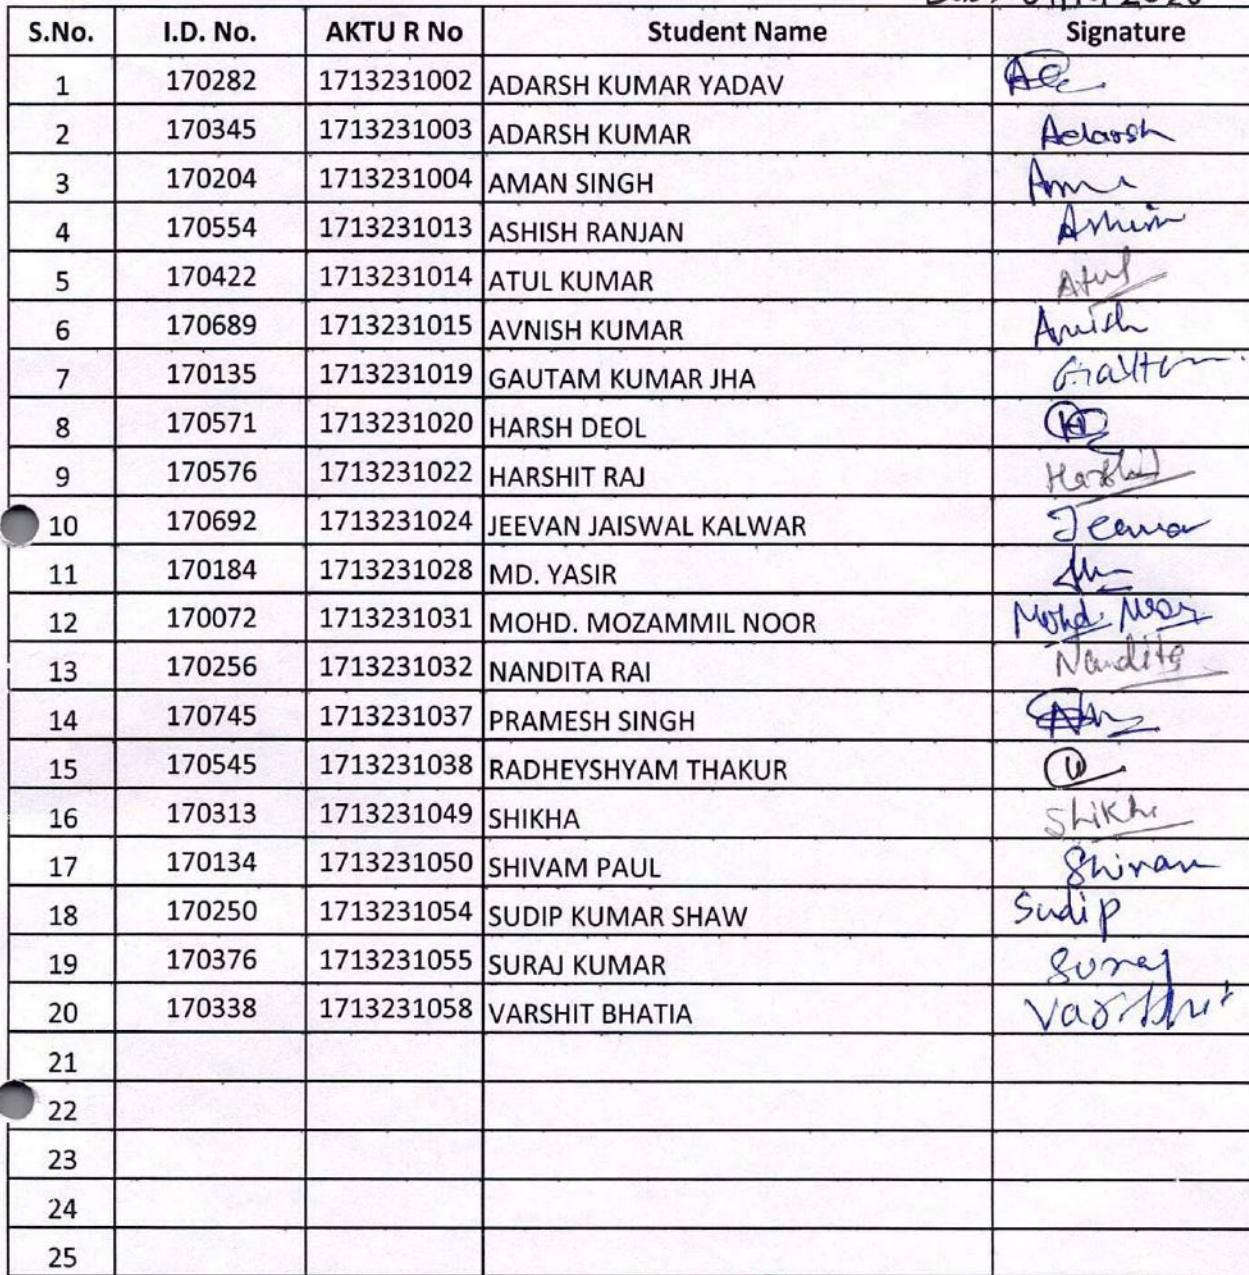 S.No. I.D. No. AKTU R No Student Name Signature
1 170282 1713231002 ADARSH KUMAR YADAV
2 170345 1713231003 ADARSH KUMAR Adarsh
3 170204 1713231004 AMAN SINGH
4 170554 1713231013 ASHISH RANJAN Ashish
5 170422 1713231014 ATUL KUMAR Atul
6 170689 1713231015 AVNISH KUMAR
7 170135 1713231019 GAUTAM KUMAR JHA
8 170571 1713231020 HARSH DEOL
9 170576 1713231022 HARSHIT RAJ Harshit
10 170692 1713231024 JEEVAN JAISWAL KALWAR Jeevan
11 170184 1713231028 MD. YASIR
12 170072 1713231031 MOHD. MOZAMMIL NOOR Mohd. Noor
13 170256 1713231032 NANDITA RAI Nandita
14 170745 1713231037 PRAMESH SINGH
15 170545 1713231038 RADHEYSHYAM THAKUR
16 170313 1713231049 SHIKHA Shikha
17 170134 1713231050 SHIVAM PAUL Shivam
18 170250 1713231054 SUDIP KUMAR SHAW Sudip
19 170376 1713231055 SURAJ KUMAR Suraj
20 170338 1713231058 VARSHIT BHATIA Varshit
21
22
23
24
25